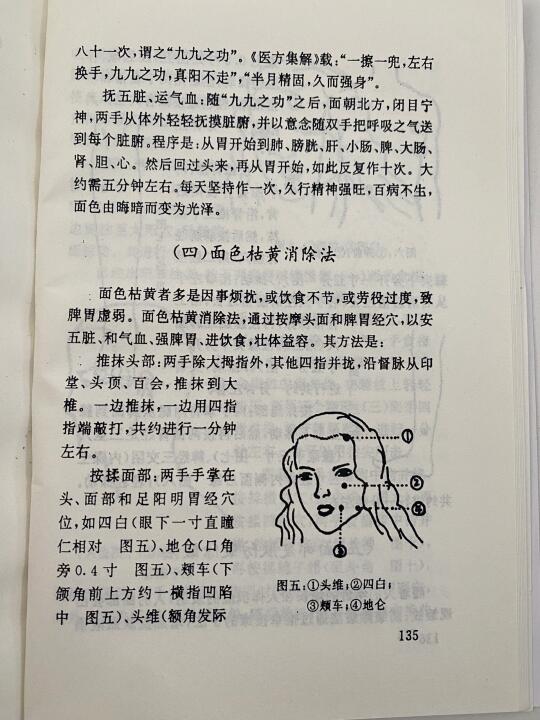 八十一次，谓之“九九之功”。《医方集解》载：“一擦一兜，左右
换手，九九之功，真阳不走”，“半月精固，久而强身”。
抚五脏、运气血：随“九九之功”之后，面朝北方，闭目宁
神，两手从体外轻轻抚摸脏腑，并以意念随双手把呼吸之气送
到每个脏腑。程序是：从胃开始到肺、膀胱、肝、小肠、脾、大肠、
肾、胆、心。然后回过头来，再从胃开始，如此反复作十次。大
约需五分钟左右。每天坚持作一次，久行精神强旺，百病不生，
面色由晦暗而变为光泽。
(四)面色枯黄消除法
面色枯黄者多是因事烦扰，或饮食不节，或劳役过度，致
脾胃虚弱。面色枯黄消除法，通过按摩头面和脾胃经穴，以安
五脏、和气血、强脾胃、进饮食，壮体益容。其方法是：
推抹头部：两手除大拇指外，其他四指并拢，沿督脉从印
堂、头顶、百会，推抹到大
椎。一边推抹，一边用四指
指端敲打，共约进行一分钟
左右。
按揉面部：两手手掌在
头、面部和足阳明胃经穴
位，如四白(眼下一寸直瞳
仁相对 图五)、地仓(口角
旁0.4寸 图五)、颊车(下
颌角前上方约一横指凹陷
中 图五)、头维(额角发际
①
②
③
图五：①头维；②四白；
③颊车；④地仑
135